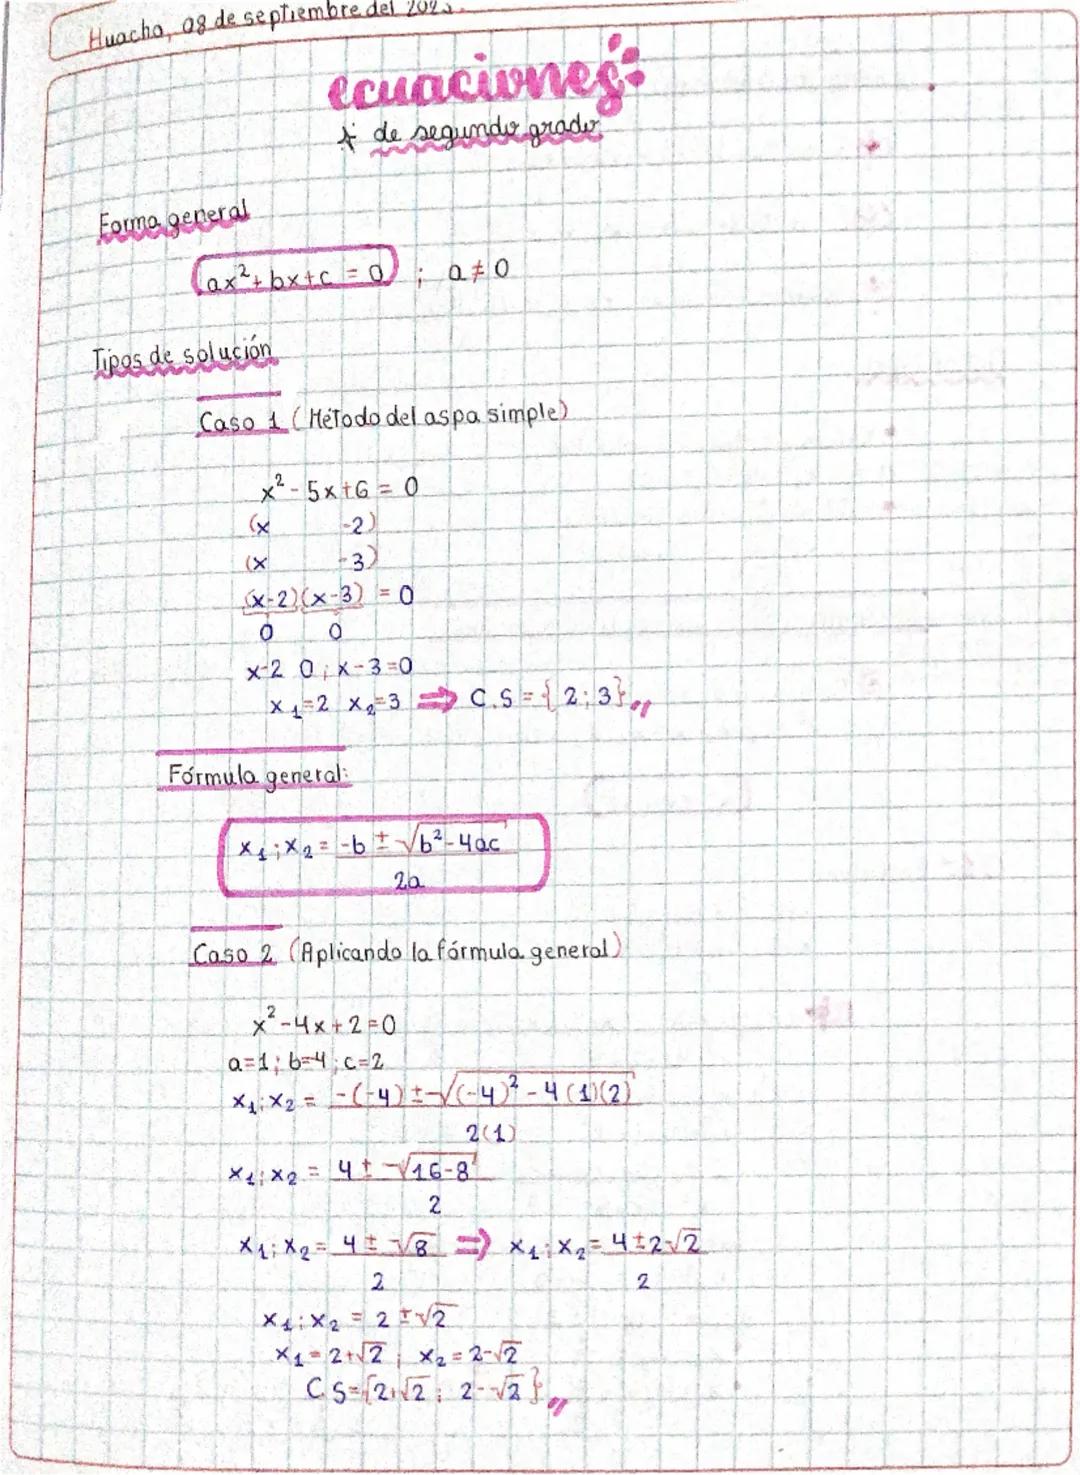 Huacho, 08 de septiembre del 202
ecuaciones:
de segundo grado
Forma general
ax² + bx + c = 0 ; a ≠ 0
Tipos de solución
Caso 1 (Método del aspa simple)
x² - 5x + 6 = 0
(x -2)
(x -3)
(x-2)(x-3) = 0
0 0
x-2 0 ; x-3=0
x₁=2 x₂=3 ⇒ C.S = { 2 ; 3 }
Fórmula general:
x₁ ; x₂ = -b ± √b² - 4ac
2a
Caso 2 (Aplicando la fórmula general)
x² - 4x + 2 = 0
a=1 ; b=4 ; c=2
x₁ ; x₂ = -(-4) ± √(-4)² - 4(1)(2)
2(1)
x₁ ; x₂ = 4 ± √16-8
2
x₁ ; x₂ = 4 ± √8 ⇒ x₁ ; x₂ = 4 ± 2√2
2 2
x₁ ; x₂ = 2 ± √2
x₁ = 2+√2 ; x₂ = 2-√2
C.S = {2+√2 ; 2-√2 }